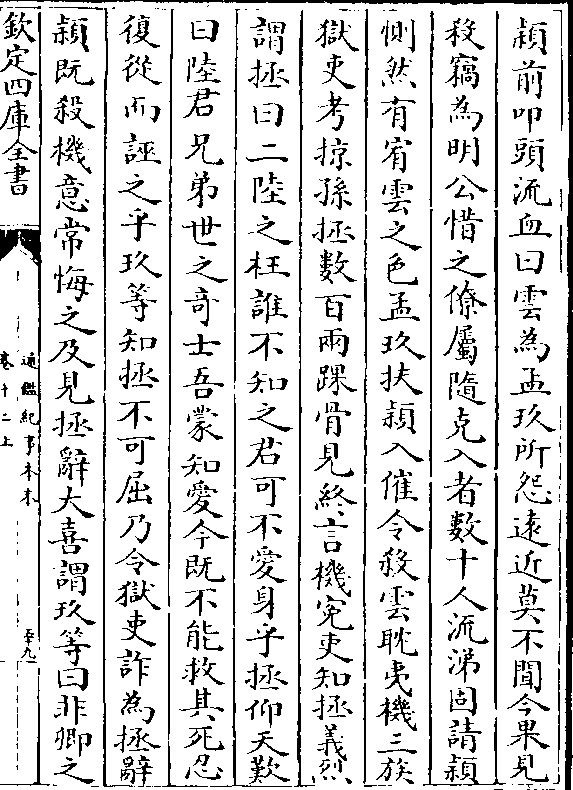 穎前叩頭流血曰雲為孟玖所怨遠近莫不聞今果見
殺竊為明公惜之僚屬隨克入者數十人流涕固請穎
惻然有宥雲之色孟玖扶穎入催令殺雲耽夷機三族
獄吏考掠孫拯數百兩踝骨見終言機寃吏知拯義烈
謂拯曰二陸之枉誰不知之君可不愛身乎拯仰天歎
曰陸君兄弟世之奇士吾蒙知愛今既不能救其死忍
復從而誣之乎玖等知拯不可屈乃令獄吏詐為拯辭
穎既殺機意常悔之及見拯辭大喜謂玖等曰非卿之
欽定四庫全書
通鑑紀事本末
卷十二上